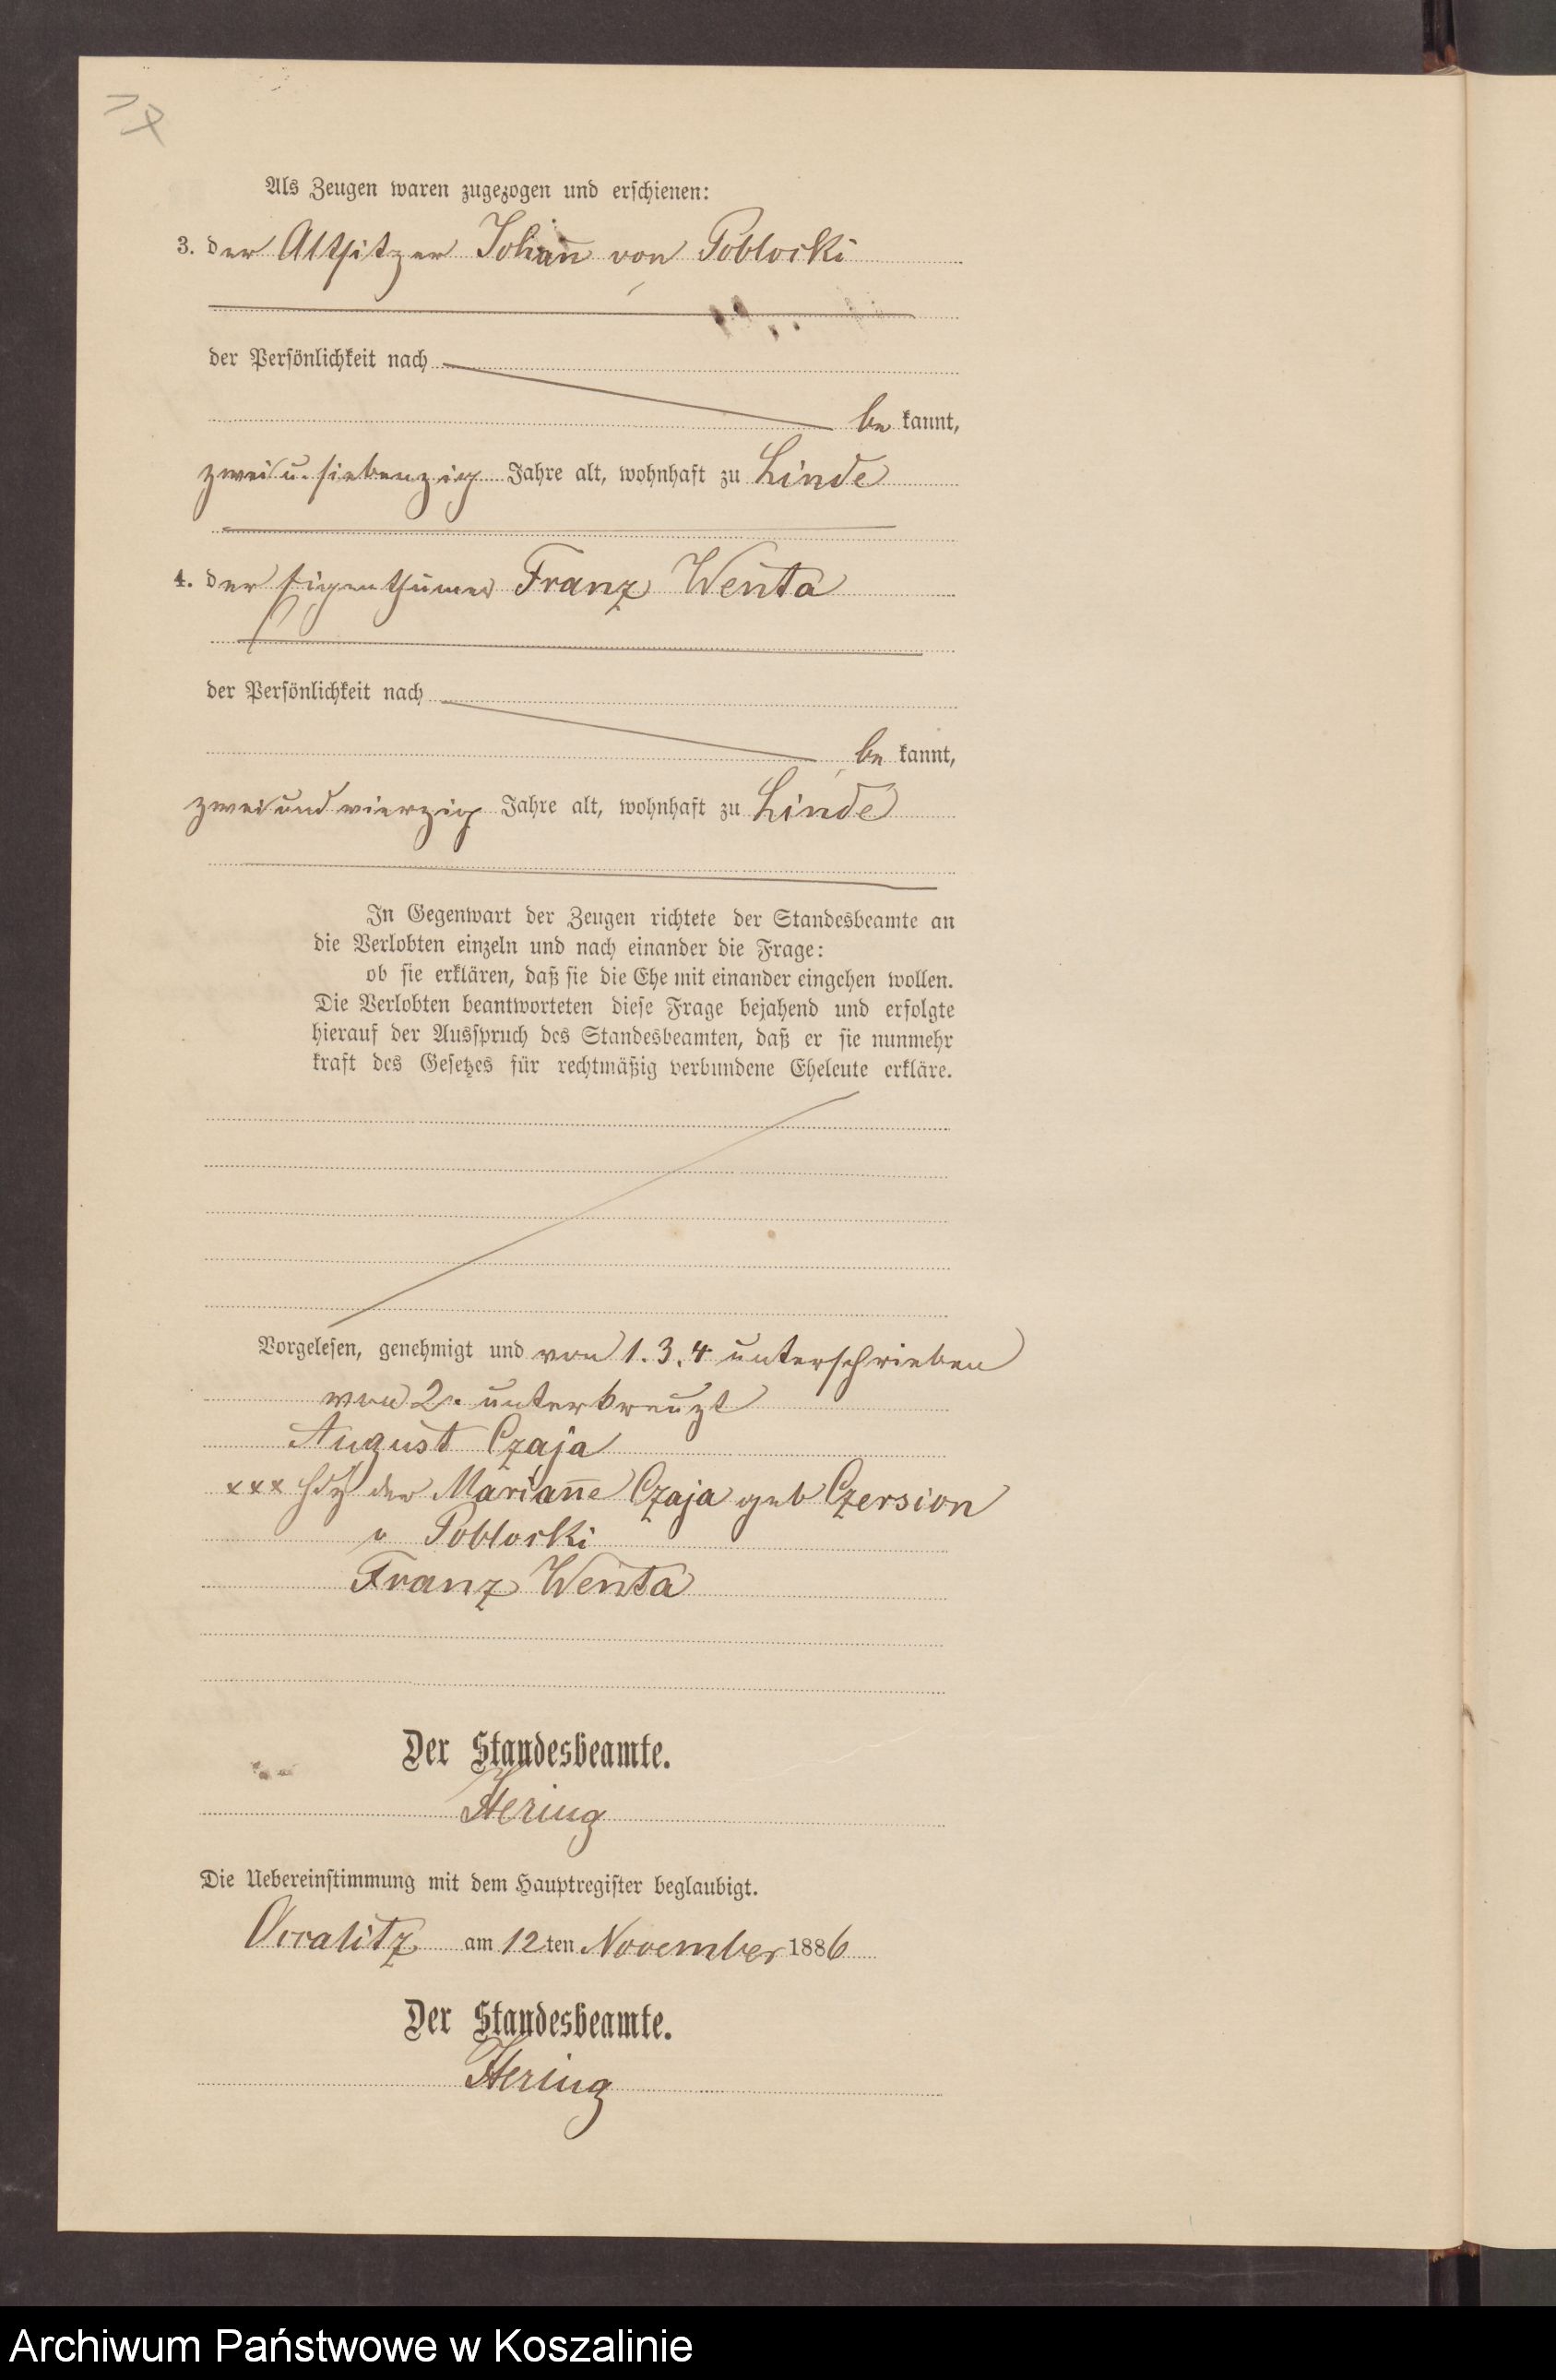 Als Zeugen waren zugezogen und erschienen:
3. der Altsitzer Johan̄ von Poblocki
der Persönlichkeit nach
be kannt,
zwei u. siebenzig Jahre alt, wohnhaft zu Linde
4. der Eigenthümer Franz Wenta
der Persönlichkeit nach
be kannt,
zwei und vierzig Jahre alt, wohnhaft zu Linde
In Gegenwart der Zeugen richtete der Standesbeamte an
die Verlobten einzeln und nach einander die Frage:
ob sie erklären, daß sie die Ehe mit einander eingehen wollen.
Die Verlobten beantworteten diese Frage bejahend und erfolgte
hierauf der Ausspruch des Standesbeamten, daß er sie nunmehr
kraft des Gesetzes für rechtmäßig verbundene Eheleute erkläre.
Vorgelesen, genehmigt und von 1. 3. 4 unterschrieben
von 2. unterkreuzt
August Czaja
xxx Hdz der Marian̄e Czaja geb Czersion
v Poblocki
Franz Wenta
Der Standesbeamte.
Hering
Die Uebereinstimmung mit dem Hauptregister beglaubigt.
Occalitz am 12 ten November 1886
Der Standesbeamte.
Hering
Archiwum Państwowe w Koszalinie